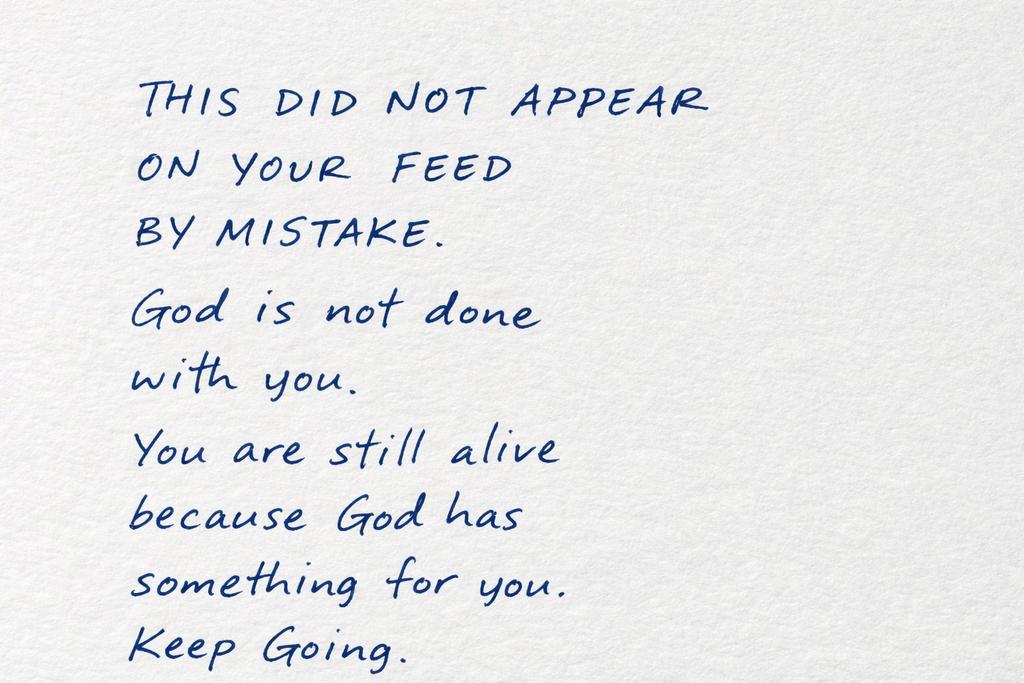 THIS DID NOT APPEAR
ON YOUR FEED
BY MISTAKE.
God is not done
with you.
You are still alive
because God has
something for you.
Keep Going.